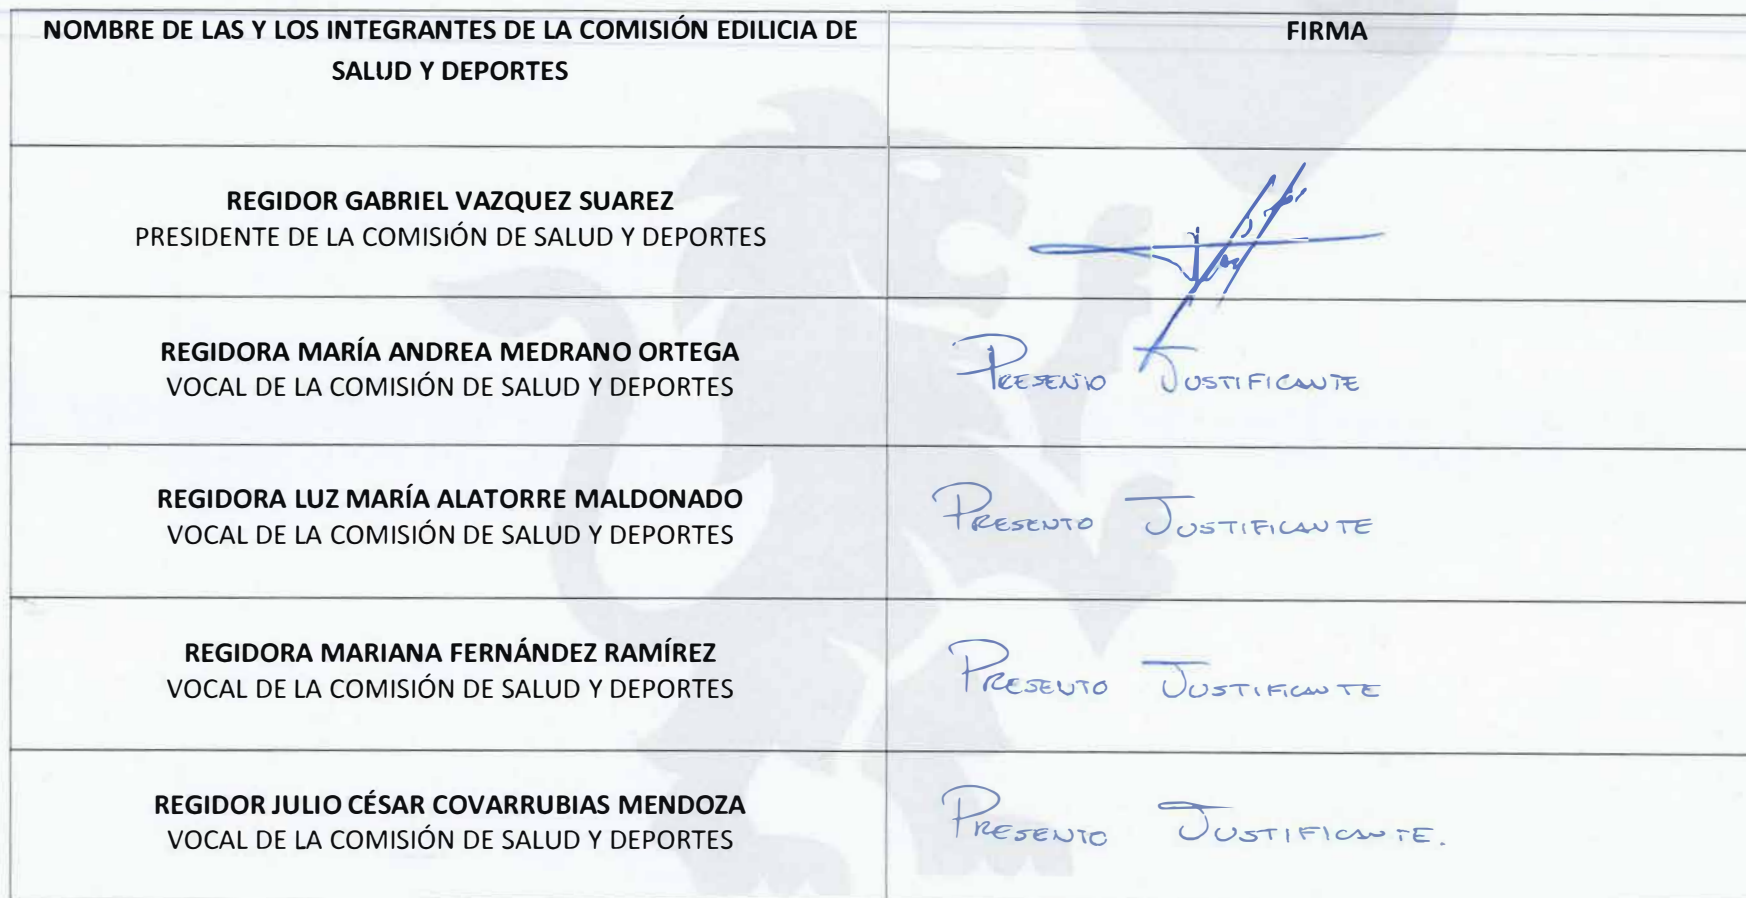 NOMBRE DE LAS Y LOS INTEGRANTES DE LA COMISIÓN EDILICIA DE
SALUD Y DEPORTES
FIRMA
REGIDOR GABRIEL VAZQUEZ SUAREZ
PRESIDENTE DE LA COMISIÓN DE SALUD Y DEPORTES
REGIDORA MARÍA ANDREA MEDRANO ORTEGA
VOCAL DE LA COMISIÓN DE SALUD Y DEPORTES
PRESENTO JUSTIFICANTE
REGIDORA LUZ MARÍA ALATORRE MALDONADO
VOCAL DE LA COMISIÓN DE SALUD Y DEPORTES
PRESENTO JUSTIFICANTE
REGIDORA MARIANA FERNÁNDEZ RAMÍREZ
VOCAL DE LA COMISIÓN DE SALUD Y DEPORTES
PRESENTO JUSTIFICANTE
REGIDOR JULIO CÉSAR COVARRUBIAS MENDOZA
VOCAL DE LA COMISIÓN DE SALUD Y DEPORTES
PRESENTO JUSTIFICANTE.